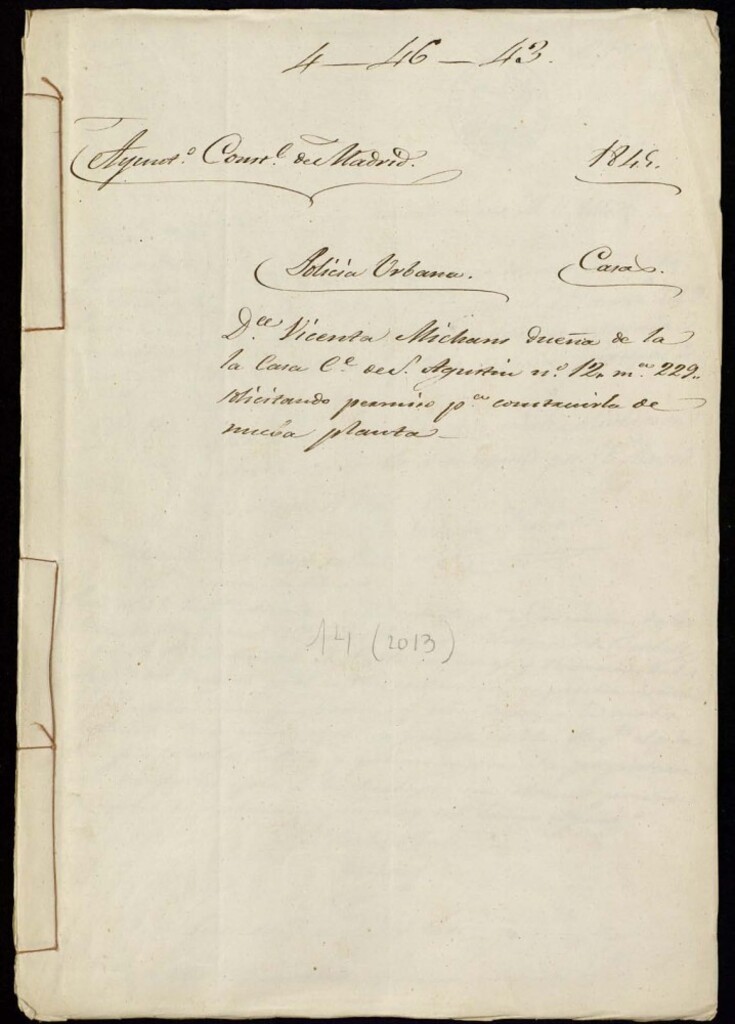 4 — 46 — 43.
Ayunt.º Const.l de Madrid. 1845.
Policia Urbana. Casas.
D.ª Vicenta Michans dueña de la
la Casa C.e de S. Agustin n.º 12, m.na 229,
solicitando permiso p.a construirla de
nueba planta —
14 (2013)